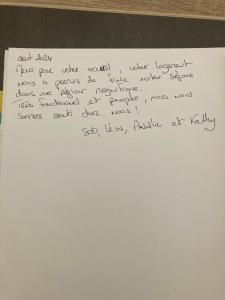 août 2024
Merci pour votre accueil, votre logement
nous a permis de finir notre séjour
dans une région magnifique.
Très fonctionnel et propre, nous nous
sommes senti chez nous !
Seb, Léa, et Kathy